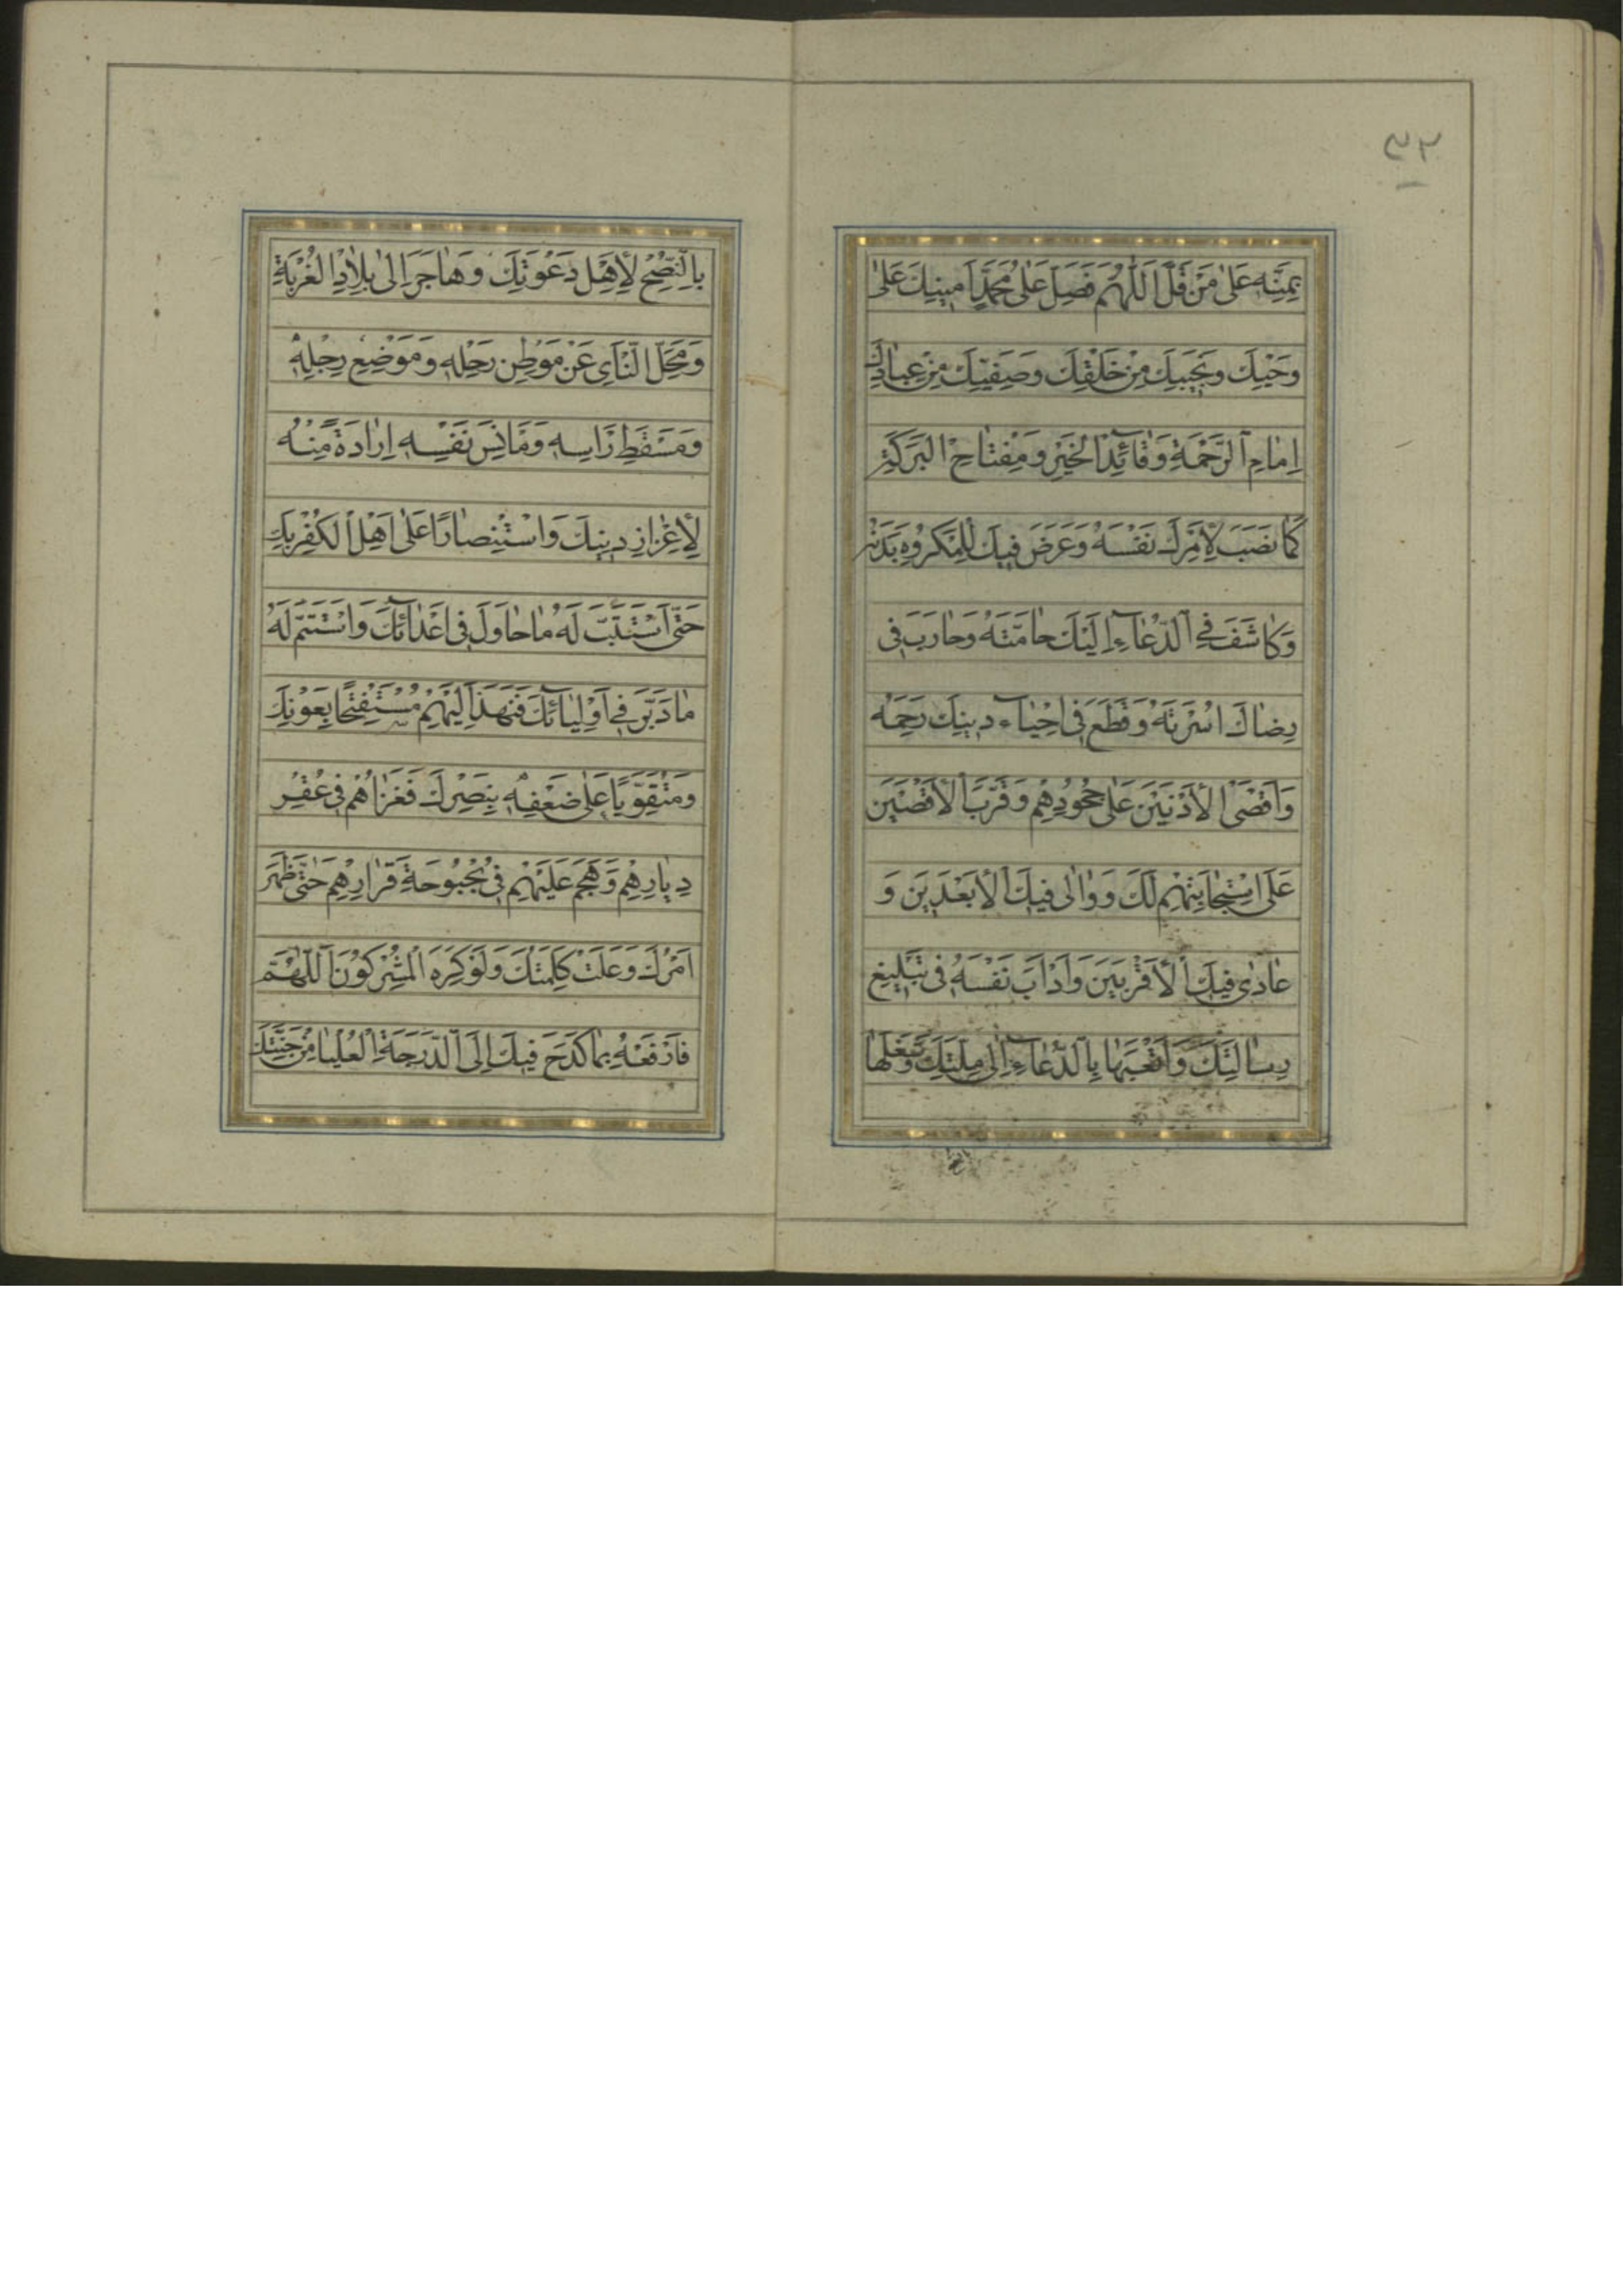 ٣٢
بِمَنِّهِ عَلىٰ مَنْ قَلَّ اَللّٰهُمَّ فَصَلِّ عَلىٰ مُحَمَّدٍ اَمينِكَ عَلىٰ
وَحْيِكَ وَنَجيبِكَ مِنْ خَلْقِكَ وَصَفِيِّكَ مِنْ عِبادِكَ
اِمامِ الرَّحْمَةِ وَقآئِدِ الْخَيْرِ وَمِفْتاحِ الْبَرَكَةِ
كَما نَصَبَ لِأَمْرِكَ نَفْسَهُ وَعَرَّضَ فيكَ لِلْمَكْرُوهِ بَدَنَهُ
وَكاشَفَ فِي الدُّعآءِ اِلَيْكَ حامَّتَهُ وَحارَبَ في
رِضاكَ اُسْرَتَهُ وَقَطَعَ في اِحْياءِ دينِكَ رَحِمَهُ
وَاَقْصَى الْأَدْنَيْنَ عَلىٰ جُحُودِهِمْ وَقَرَّبَ الْأَقْصَيْنَ
عَلَى اسْتِجابَتِهِمْ لَكَ وَوالىٰ فيكَ الْأَبْعَدينَ وَ
عادىٰ فيكَ الْأَقْرَبينَ وَاَدْاَبَ نَفْسَهُ في تَبْليغِ
رِسالَتِكَ وَاَتْعَبَها بِالدُّعآءِ اِلىٰ مِلَّتِكَ وَشَغَلَها
بِالنُّصْحِ لِأَهْلِ دَعْوَتِكَ وَهاجَرَ اِلىٰ بِلادِ الْغُرْبَةِ
وَمَحَلِّ النَّأْيِ عَنْ مَوْطِنِ رَحْلِهِ وَمَوْضِعِ رِجْلِهِ
وَمَسْقَطِ رَاْسِهِ وَمَاْنَسِ نَفْسِهِ اِرادَةً مِنْهُ
لِأِعْزازِ دينِكَ وَاسْتِنْصارًا عَلىٰ اَهْلِ الْكُفْرِ بِكَ
حَتَّى اسْتَتَبَّ لَهُ ما حاوَلَ في اَعْدائِكَ وَاسْتَتَمَّ لَهُ
ما دَبَّرَ في اَوْلِيآئِكَ فَنَهَدَ اِلَيْهِمْ مُسْتَفْتِحًا بِعَوْنِكَ
وَمُتَقَوِّيًا عَلىٰ ضَعْفِهِ بِنَصْرِكَ فَغَزاهُمْ في عُقْرِ
دِيارِهِمْ وَهَجَمَ عَلَيْهِمْ في بُحْبُوحَةِ قَرارِهِمْ حَتّىٰ ظَهَرَ
اَمْرُكَ وَعَلَتْ كَلِمَتُكَ وَلَوْ كَرِهَ الْمُشْرِكُونَ اَللّٰهُمَّ
فَارْفَعْهُ بِما كَدَحَ فيكَ اِلَى الدَّرَجَةِ الْعُلْيا مِنْ جَنَّتِكَ